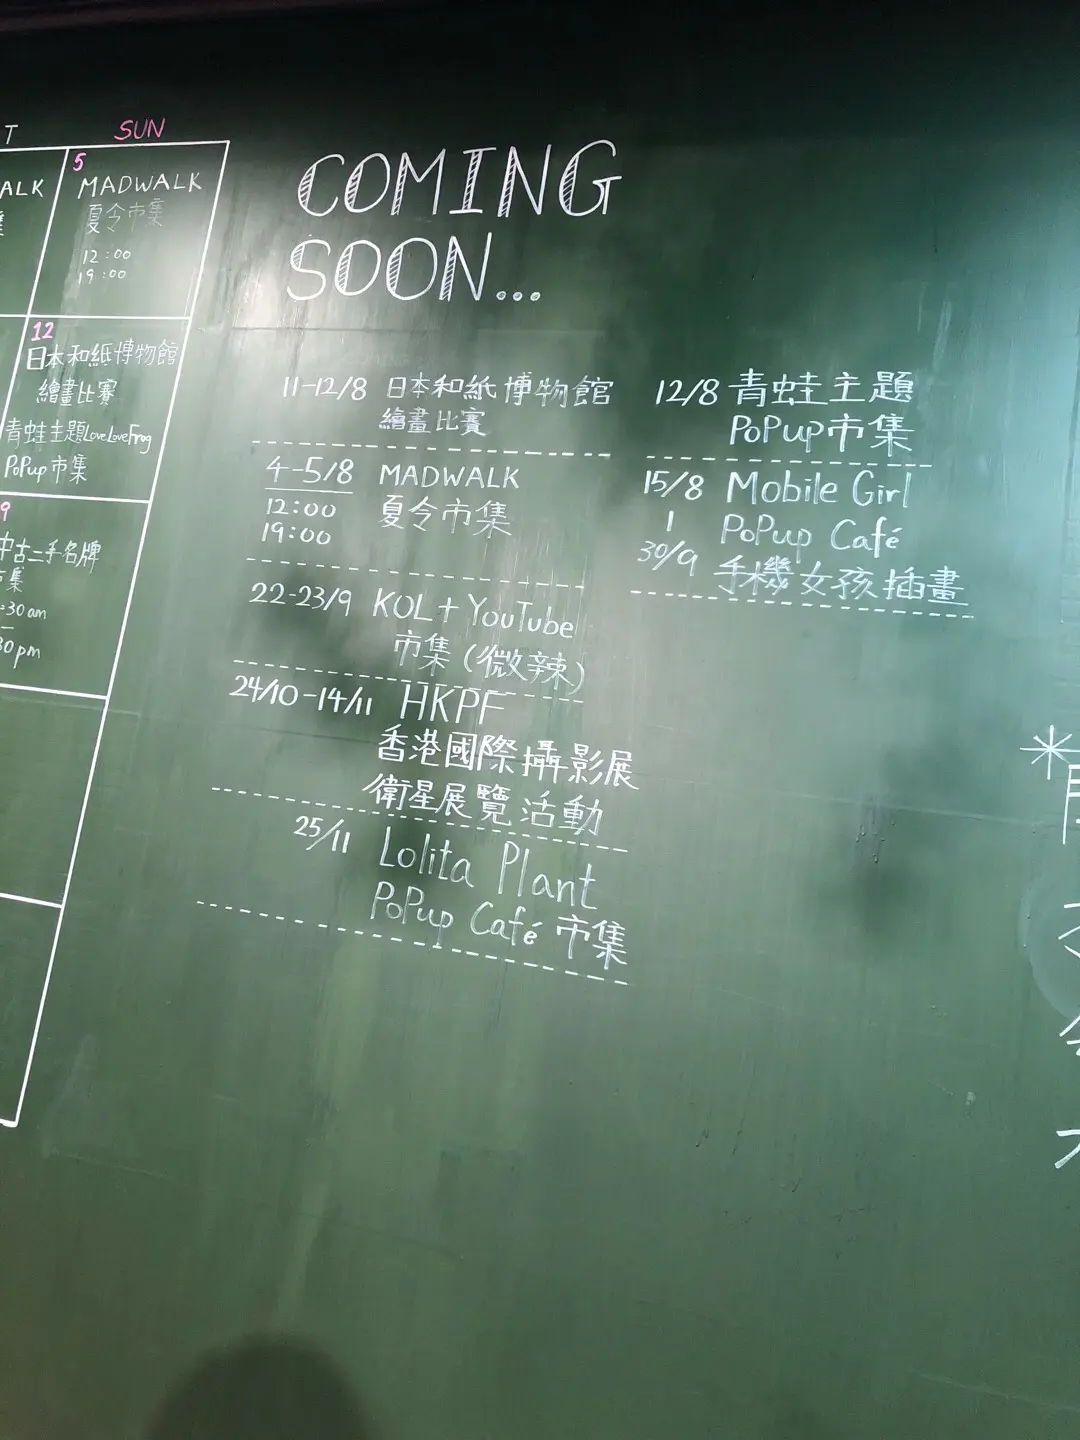 T
SUN
ALK
5
MADWALK
夏令市集
12:00
19:00
12
日本和紙博物館
繪畫比賽
青蛙主題LoveLoveFrog
PoPup市集
9
中古二手名牌
市集
:30am
30pm
COMING
SOON...
11-12/8 日本和紙博物館
繪畫比賽
4-5/8 MADWALK
12:00 夏令市集
19:00
22-23/9 KOL+YouTube
市集(微辣)
24/10-14/11 HKPF
香港國際攝影展
衛星展覽活動
25/11 Lolita Plant
PoPup Café 市集
12/8 青蛙主題
PoPup市集
15/8 Mobile Girl
| PoPup Café
30/9 手機女孩插畫